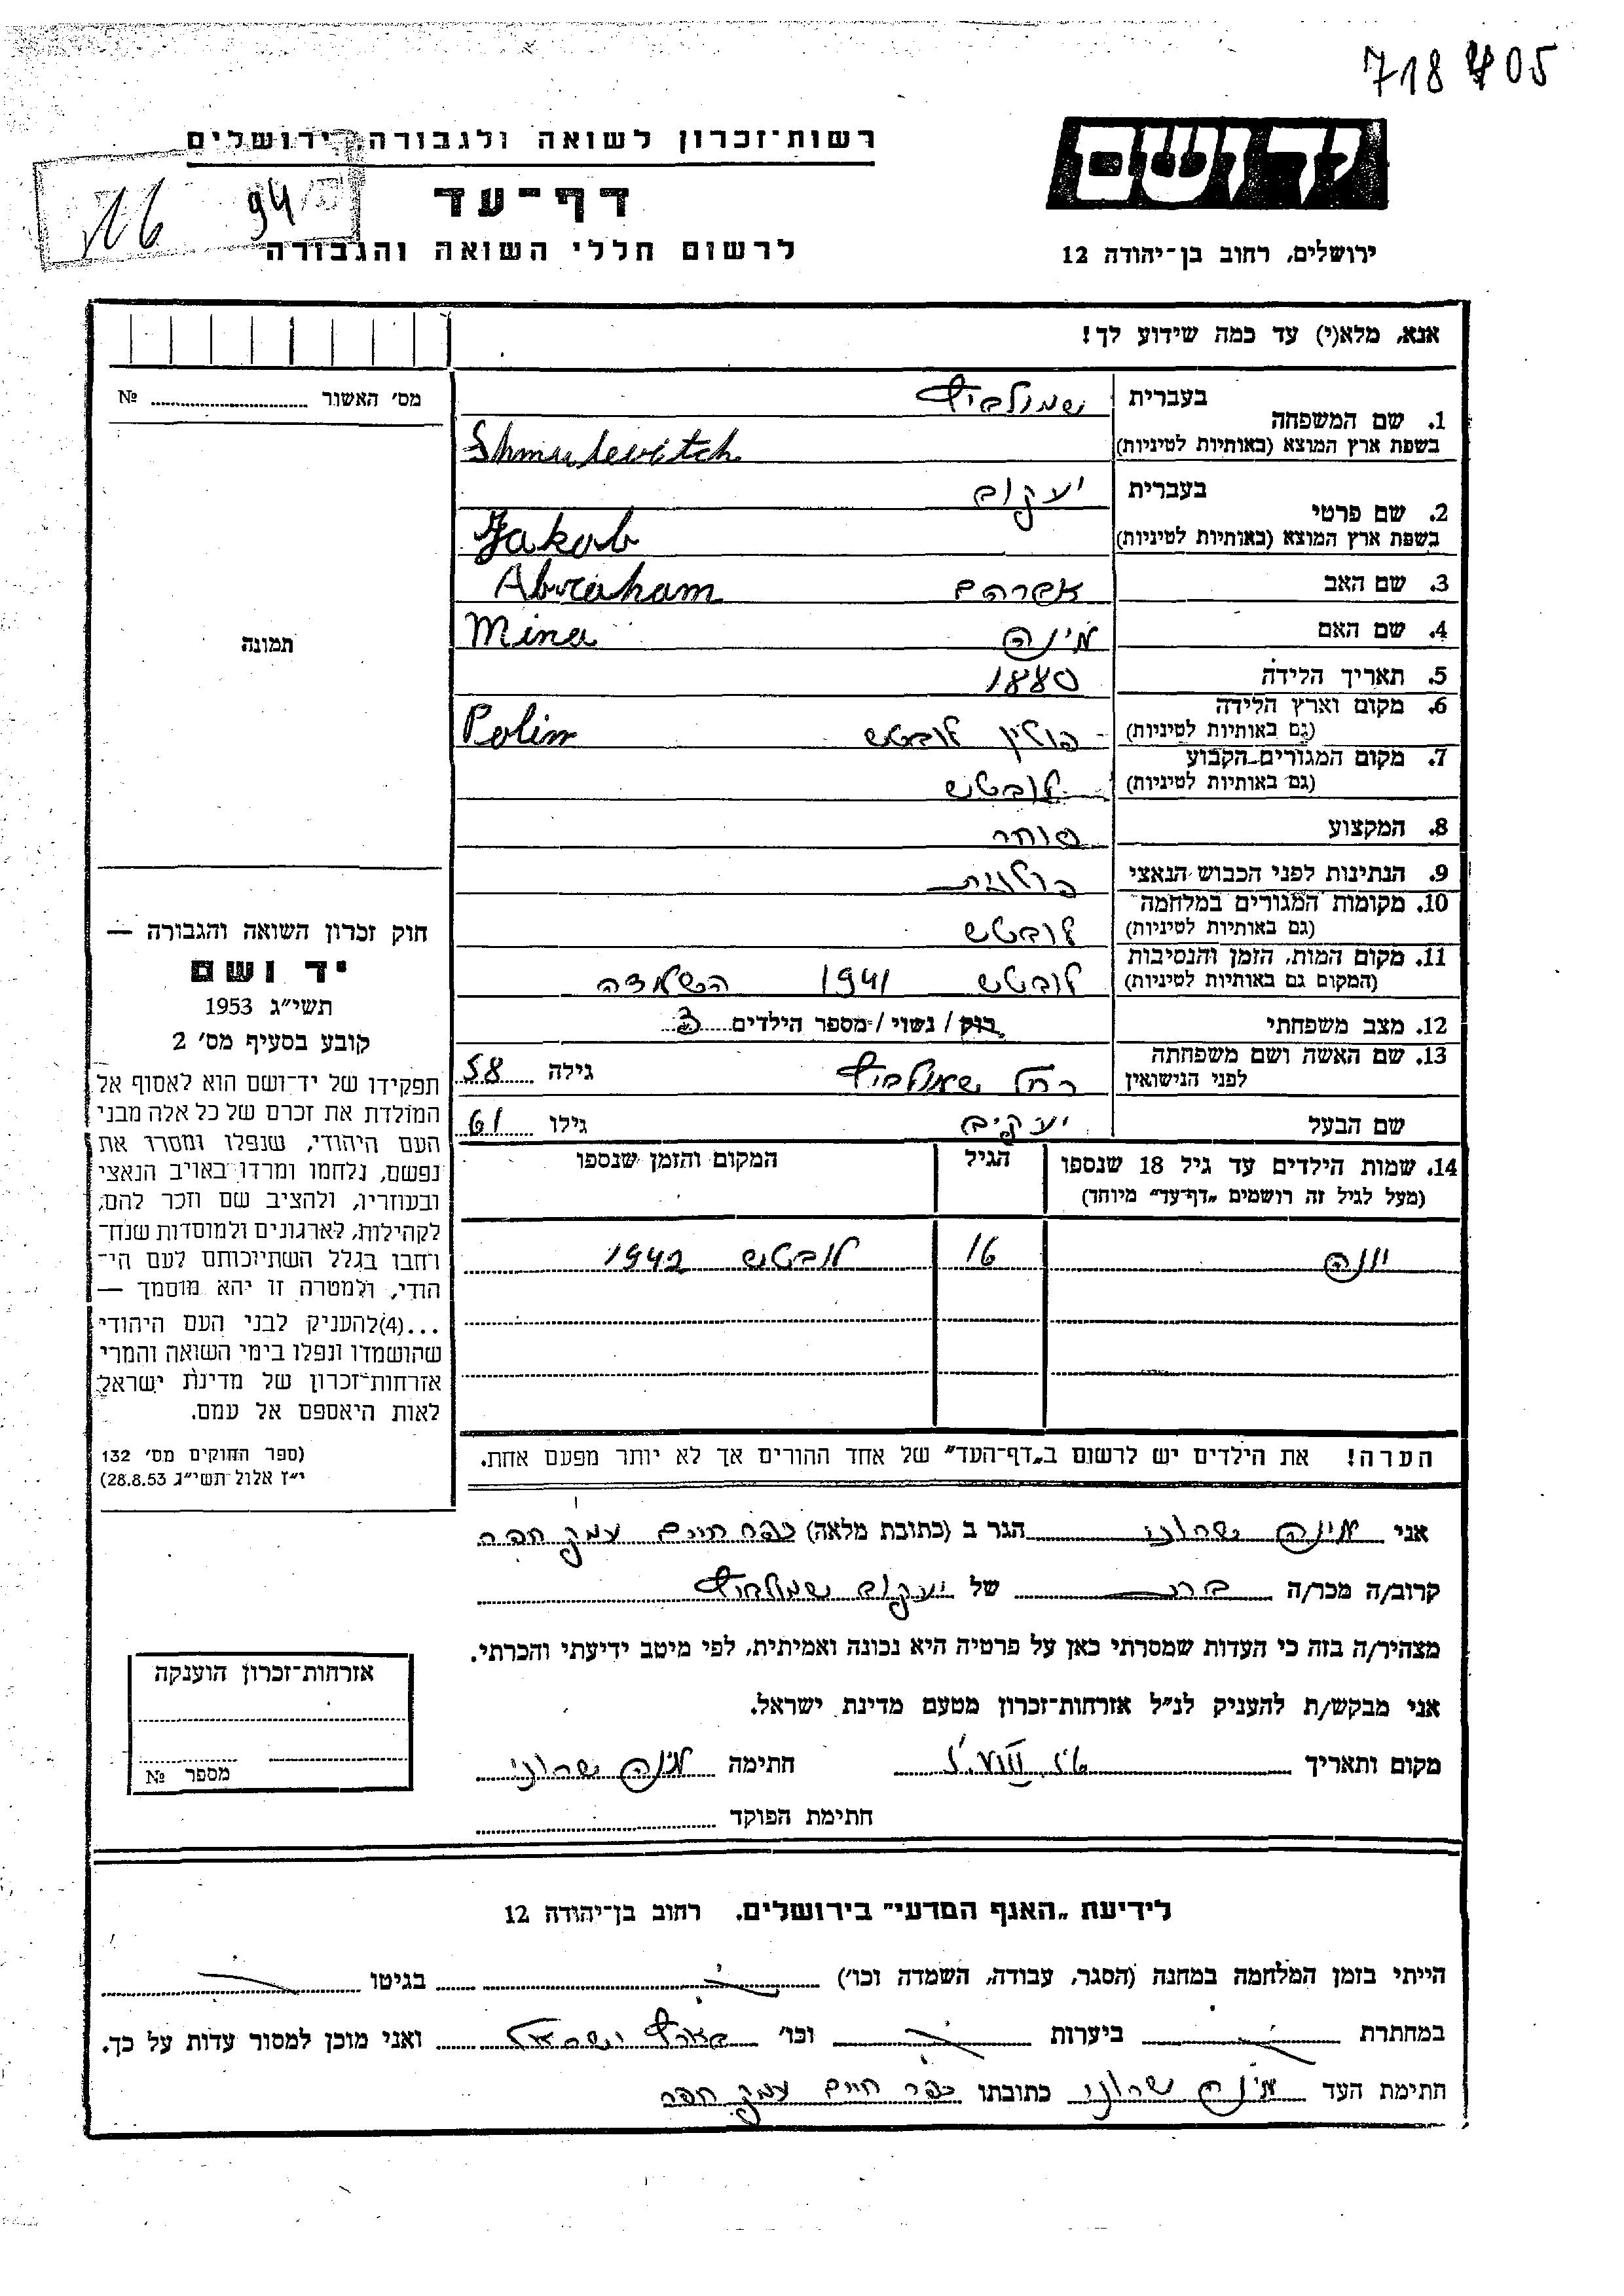 718405
רשות־זכרון לשואה ולגבורה, ירושלים
יד ושם
דף־עד
94
16
לרשום חללי השואה והגבורה
ירושלים, רחוב בן־יהודה 12
אנא, מלא(י) עד כמה שידוע לך!
מס׳ האשור № ..........
תמונה
1. שם המשפחה בעברית שמולביץ
בשפת ארץ המוצא (באותיות לטיניות) Shmulewitch
2. שם פרטי בעברית יעקוב
בשפת ארץ המוצא (באותיות לטיניות) Jakob
3. שם האב אברהם Abraham
4. שם האם מינה Mina
5. תאריך הלידה 1880
6. מקום וארץ הלידה (גם באותיות לטיניות) פולין לובטש Polin
7. מקום המגורים הקבוע (גם באותיות לטיניות) לובטש
8. המקצוע סוחר
9. הנתינות לפני הכבוש הנאצי פולנית
10. מקומות המגורים במלחמה (גם באותיות לטיניות) לובטש
11. מקום המות, הזמן והנסיבות (המקום גם באותיות לטיניות) לובטש 1941 השמדה
12. מצב משפחתי רווק / נשוי / מספר הילדים 3
13. שם האשה ושם משפחתה לפני הנישואין רחל שמולביץ גילה 58
שם הבעל יעקוב גילו 61
14. שמות הילדים עד גיל 18 שנספו הגיל המקום והזמן שנספו
(מעל לגיל זה רושמים „דף־עד” מיוחד)
יונה 16 לובטש 1942
הערה! את הילדים יש לרשום ב„דף־העד” של אחד ההורים אך לא יותר מפעם אחת.
חוק זכרון השואה והגבורה —
יד ושם
תשי״ג 1953
קובע בסעיף מס׳ 2
תפקידו של יד־ושם הוא לאסוף אל
המולדת את זכרם של כל אלה מבני
העם היהודי, שנפלו ומסרו את
נפשם, נלחמו ומרדו באויב הנאצי
ובעוזריו, ולהציב שם וזכר להם,
לקהילות, לארגונים ולמוסדות שנח־
רחבו בגלל השתייכותם לעם הי־
הודי, ולמטרה זו יהא מוסמך —
...(4)להעניק לבני העם היהודי
שהושמדו ונפלו בימי השואה והמרי
אזרחות־זכרון של מדינת ישראל
לאות היאספם אל עמם.
(ספר החוקים מס׳ 132
י״ז אלול תשי״ג 28.8.53)
אני מינה שרוני הגר ב (כתובת מלאה) כפר חיים עמק חפר
קרוב/ה מכר/ה בת של יעקוב שמולביץ
מצהיר/ה בזה כי העדות שמסרתי כאן על פרטיה היא נכונה ואמיתית, לפי מיטב ידיעתי והכרתי.
אני מבקש/ת להעניק לנ״ל אזרחות־זכרון מטעם מדינת ישראל.
מקום ותאריך חתימה מינה שרוני
חתימת הפוקד
אזרחות־זכרון הוענקה
מספר №
לידיעת „האגף המדעי” בירושלים. רחוב בן־יהודה 12
הייתי בזמן המלחמה במחנה (הסגר, עבודה, השמדה וכו׳) בגיטו
במחתרת ביערות וכו׳ בארץ ישראל ואני מוכן למסור עדות על כך.
חתימת העד מינה שרוני כתובתו כפר חיים עמק חפר